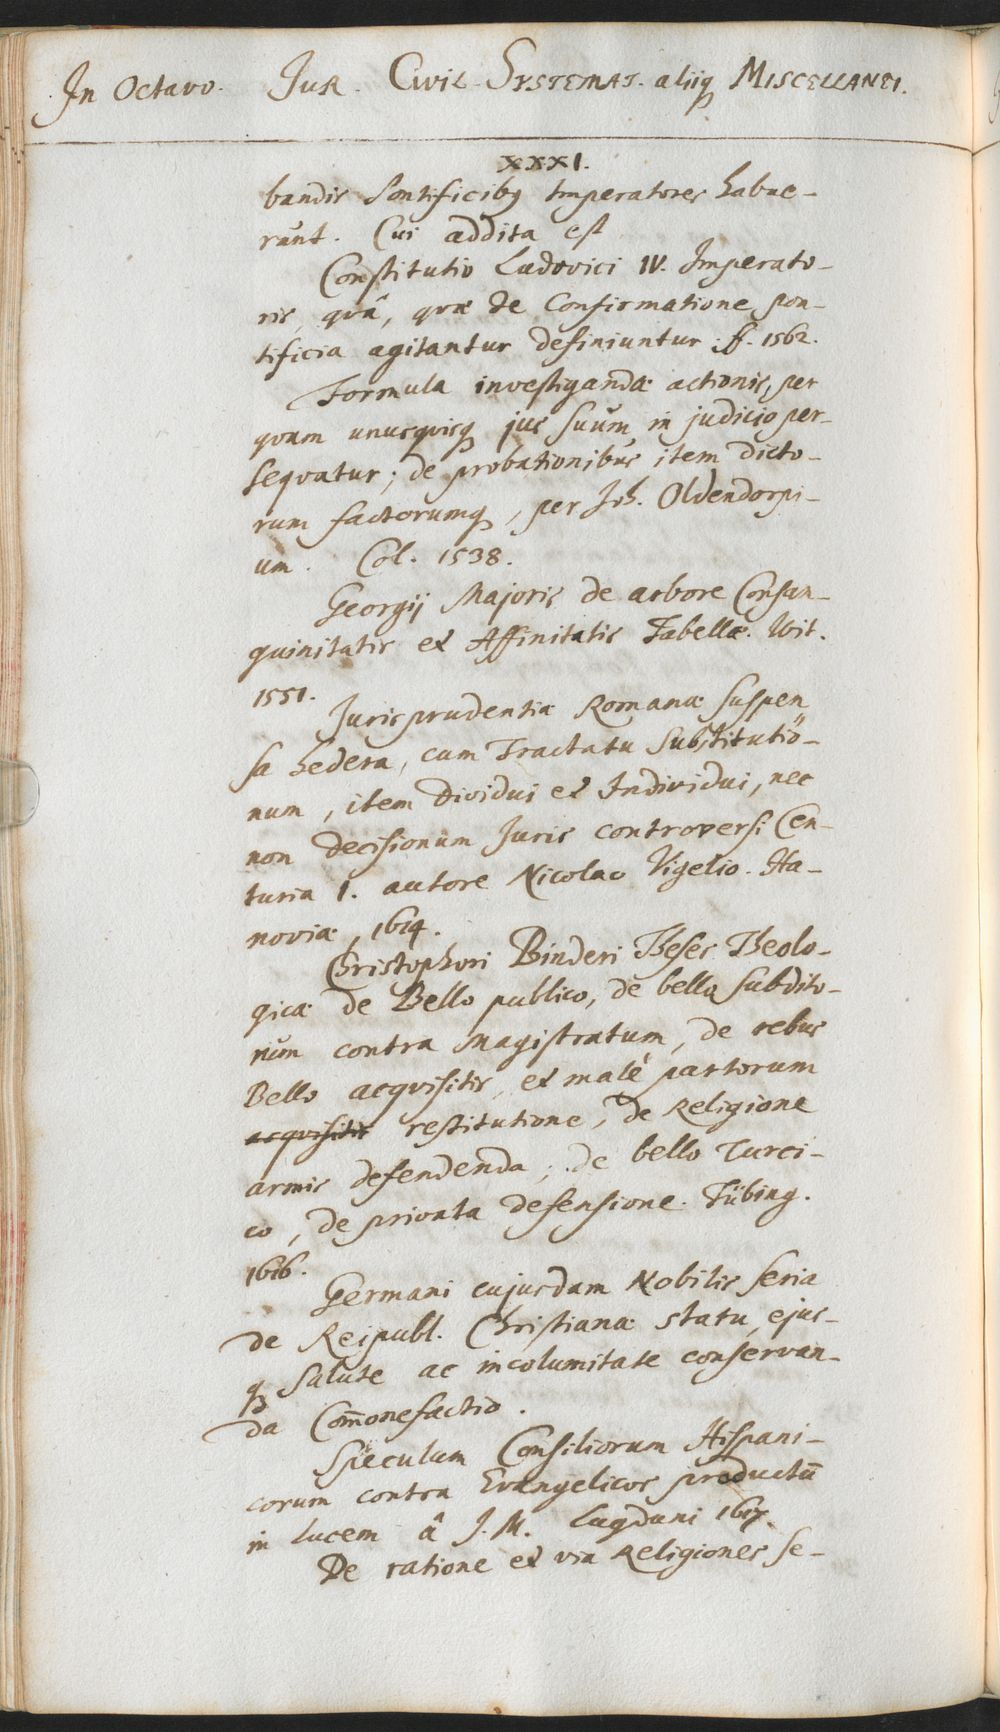 In Octavo. Jur. Civil. Systemat. aliiq; Miscellanei.
XXXI.
bandis Pontificibꝰ Imperatores habue-
runt. Cui addita est
Constitutio Ludovici IV. Imperato-
ris, quâ, quæ de Confirmatione pon-
tificia agitantur definiuntur. ff. 1562.
Formula investigandæ actionis, per
quam unusquisq; jus suum in judicio per-
sequatur; de probationibus item dicto-
rum factorumq;, per Joh. Oldendorpi-
um. Col. 1538.
Georgij Majoris de arbore Consan-
guinitatis et Affinitatis Tabellæ. Wit.
1551.
Jurisprudentiæ Romanæ suspen
sa hedera, cum Tractatu Substitutio-
num, item Dividui et Individui, nec
non Decisionum Juris controversi Cen-
turia I. autore Nicolao Vigelio. Ha-
noviæ, 1614.
Christophori Binderi Theses Theolo-
gicæ de Bello publico, de bello subdito-
rum contra Magistratum, de rebus
Bello acqvisitis, et malè partorum
acqvisitis restitutione, de Religione
armis defendenda; de bello Turci-
co, de privata defensione. Tübing.
1616.
Germani cujusdam Nobilis seria
de Reipubl. Christianæ statu, ejus-
q; salute ac incolumitate conservan-
da Com̄onefactio.
Speculum Consiliorum Hispani-
corum contra Evangelicos productū
in lucem â J. M. Lugduni 1617.
De ratione et via Religiones se-